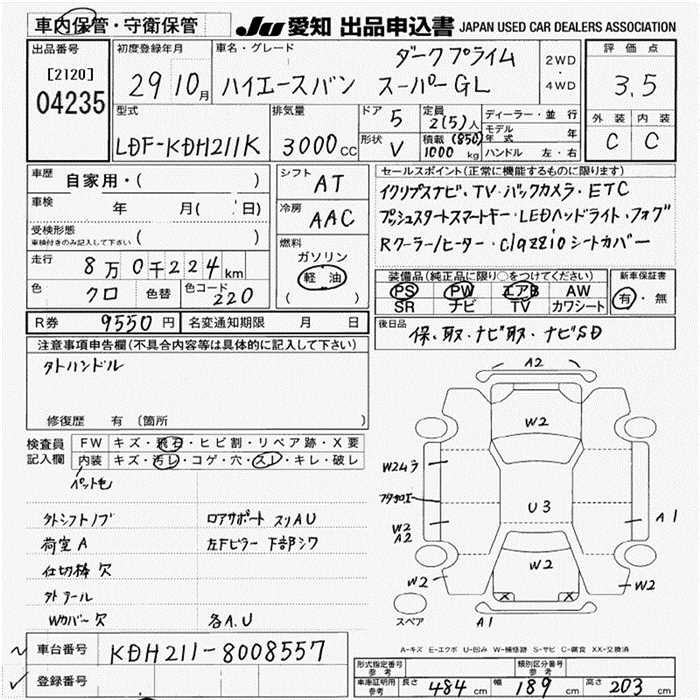 車内保管・守衛保管
JU 愛知 出品申込書 JAPAN USED CAR DEALERS ASSOCIATION
出品番号
[2120]
04235
初度登録年月
29 10月
車名・グレード
ダークプライム
ハイエースバン スーパーGL
2WD
・
4WD
評価点
3.5
外装 内装
C C
型式
LDF-KDH211K
排気量
3000cc
ドア 5
形状 V
定員 2(5)人
積載 (850) 1000 kg
ディーラー・並行
モデル年式 年
ハンドル 左・右
車歴
自家用・( )
車検 年 月( 日)
受検形態
車検付きのみ記入して下さい ( )
走行 8万0千224km
色 クロ 色替 色コード 220
シフト AT
冷房 AAC
燃料
ガソリン
軽油
( )
セールスポイント(正常に機能するものに限ります)
イクリプスナビ・TV・バックカメラ・ETC
プッシュスタートスマートキー・LEDヘッドライト・フォグ
Rクーラー/ヒーター・Clazzioシートカバー
装備品(純正品に限り○をつけてください)
PS PW エアB AW
SR ナビ TV カワシート
新車保証書
有・無
R券 9550円 名変通知期限 月 日
後日品
保・取・ナビ取・ナビSD
注意事項申告欄(不具合内容等は具体的に記入して下さい)
タトハンドル
修復歴 有 (箇所 )
検査員記入欄
FW キズ・飛石・ヒビ割・リペア跡・X要
内装 キズ・汚レ・コゲ・穴・スレ・キレ・破レ
ペット毛
タトシフトノブ
荷室A
仕切棒 欠
タトテール
Wカバー欠
ロアサポート スリAU
左Fピラー 下部シワ
各A.U
A2
W2
W2ムラ
U3
W2
A2
A1
W2
W2
W2
X X
A1
スペア
A-キズ E-エクボ U-凹み W-補修跡 S-サビ C-腐食 XX-交換済
車台番号 KDH211-8008557
登録番号
形式指定番号 参考
類別区分番号 参考
車庫証明用 参考 長さ 484cm 幅 189cm 高さ 203cm